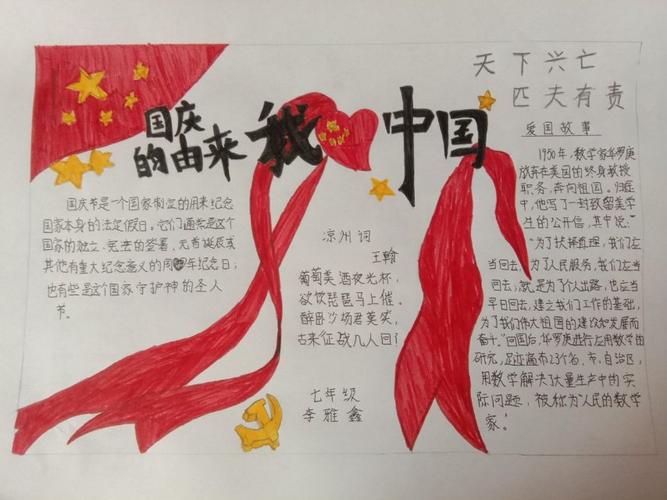 国庆
的由来
国庆节是一个国家制定的用来纪念
国家本身的法定假日。它们通常是这个
国家的独立、宪法的签署、元首诞辰或
其他有重大纪念意义的周年纪念日；
也有些是这个国家守护神的圣人
节。
我 中国
凉州词
王翰
葡萄美酒夜光杯，
欲饮琵琶马上催。
醉卧沙场君莫笑，
古来征战几人回？
七年级
李雅鑫
天下兴亡
匹夫有责
爱国故事
1950年，数学家华罗庚
放弃在美国的终身教授
职务，奔向祖国。归途
中，他写了一封致留美学
生的公开信，其中说：
“为了抉择真理，我们应当
当回去；为了人民服务，我们应当
回去；就是为了个人出路，也应当
早日回去，建立我们工作的基础，
为了我们伟大祖国的建设和发展而
奋斗。”回国后，华罗庚进行应用数学的
研究，足迹遍布23个省、市、自治区，
用数学解决了大量生产中的实
际问题，被称为“人民的数学
家”。